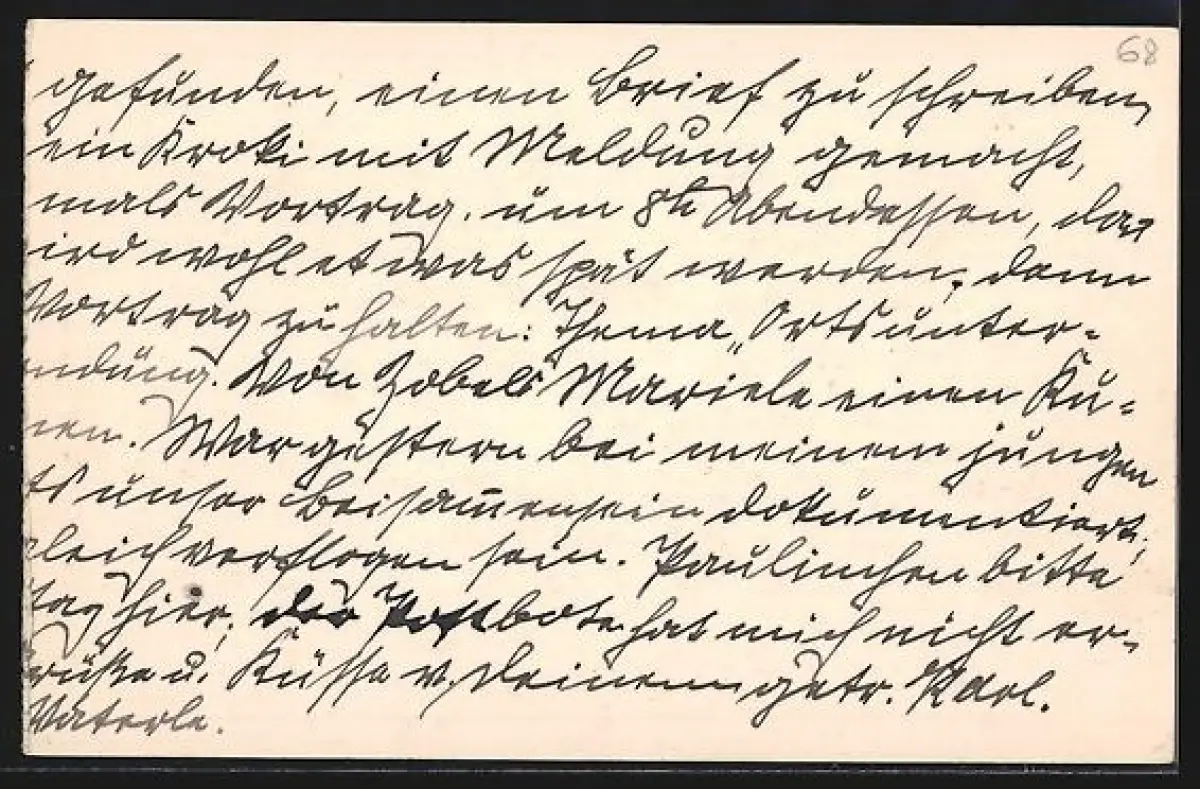 68
gefunden, einen Brief zu schreiben,
ein Kroki mit Meldung gemacht,
mals Vortrag. um 8h Abendessen, das
ird wohl etwas spät werden; dann
Vortrag zu halten: Thema „Ortsunter-
ndung. Von Zobels Mariele einen Ku-
nen. War gestern bei meinem jungen
ts unser Beisam̅ensein dokumentiert;
leich verflogen sein. Paulinchen bitte
tag hier; der Postbote hat mich nicht er-
rüße u. Küsse v. Deinem getr. Karl.
Vaterle.